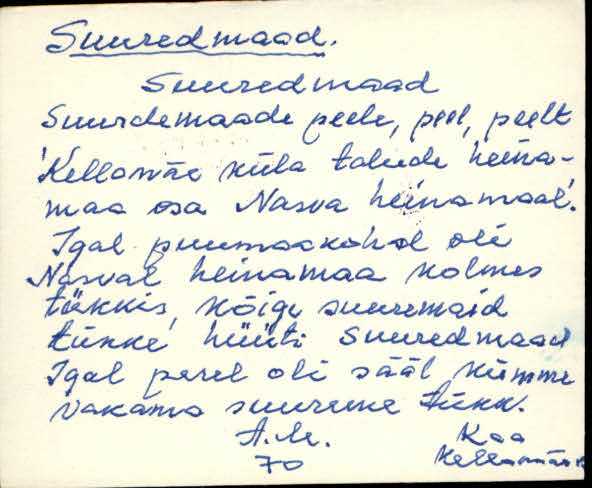 Suuredmaad.
Suuredmaad
Suurdemaade peele, peel, peelt
'Kellamäe küla talude heina-
maa osa Nasva heinamaal'.
Igal puumaakohal oli
Nasval heinamaa kolmes
tükkis, kõige suuremaid
tükke hüüti Suuredmaad
Igal perel oli sääl kümme
vakama suurune tükk.
A.M. Kaa
70 Kellamäe